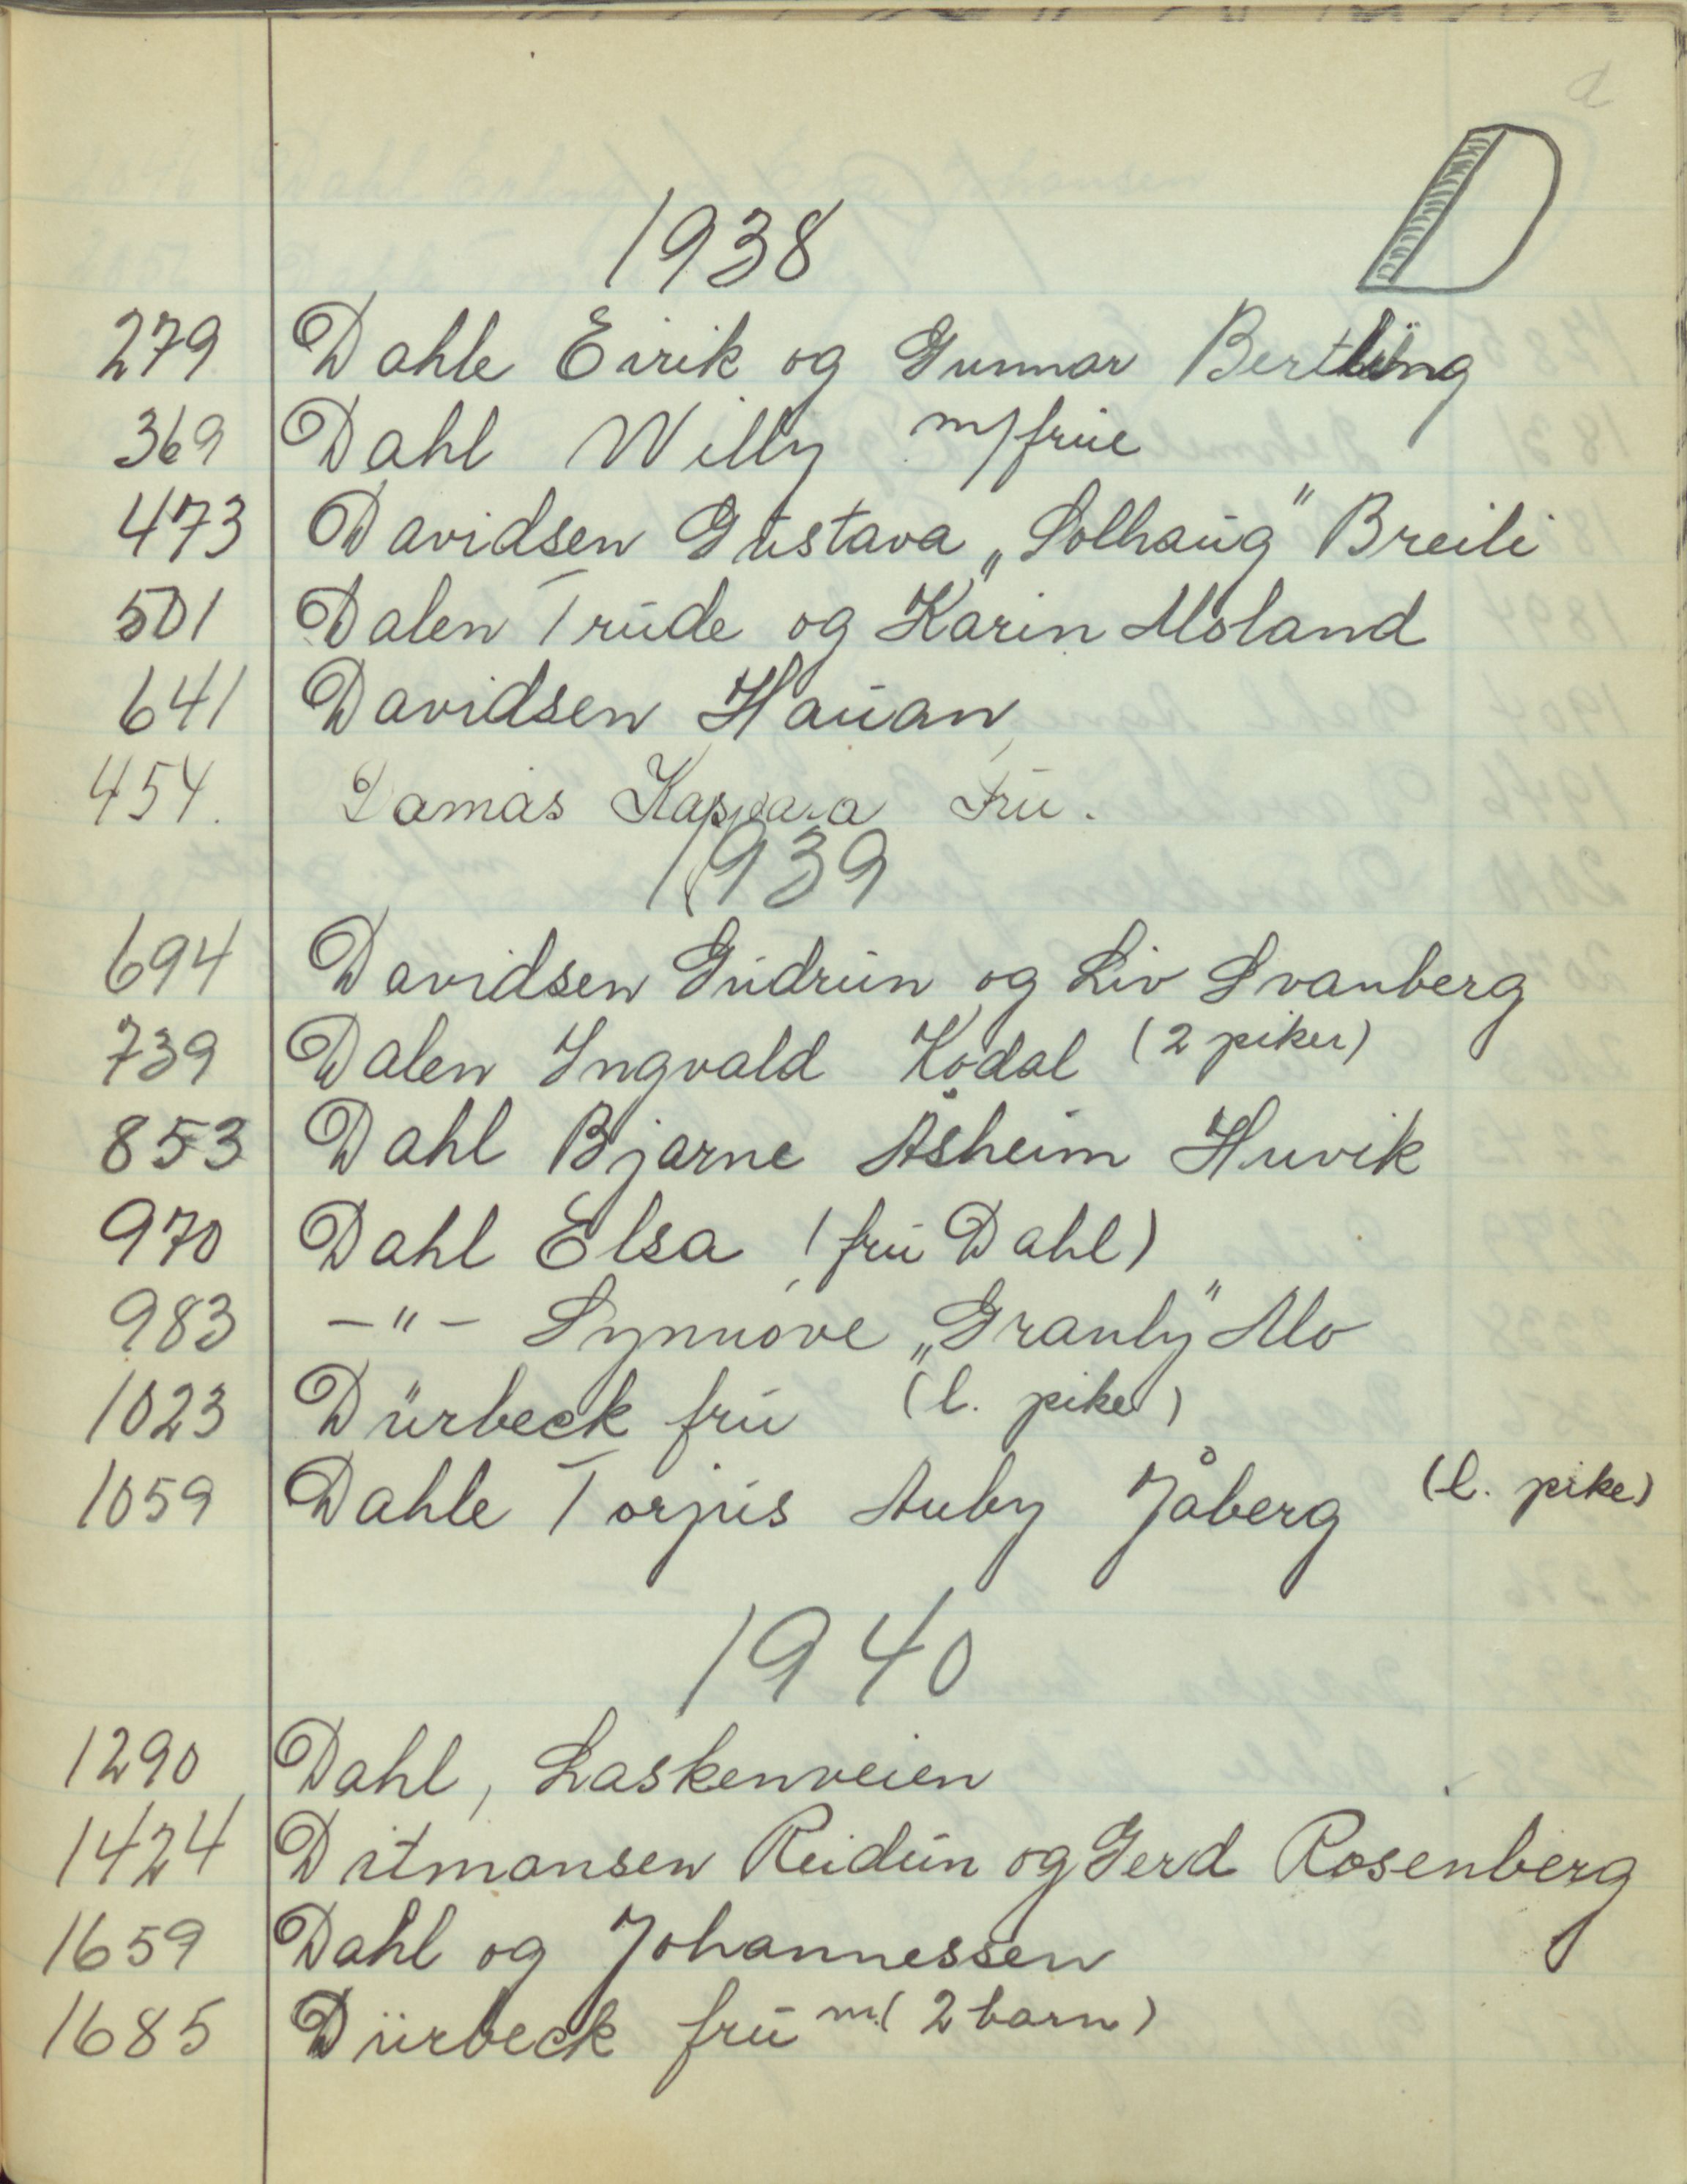 d
D
1938
279 Dahle Eirik og Gunnar Bertling
369 Dahl Willy m/frue
473 Davidsen Gustava „Solhaug" Breili
501 Dalen Trude og Karin Moland
641 Davidsen Hauan
454. Damas Kaspara Fru.
1939
694 Davidsen Gudrun og Liv Svanberg
739 Dalen Ingvald Kodal (2 piker)
853 Dahl Bjarne Åsheim Huvik
970 Dahl Elsa (fru Dahl)
983 -"- Synnøve „Granly" Mo
1023 Dürbeck fru (l. pike)
1059 Dahle Torjus Auby Jåberg (l. pike)
1940
1290 Dahl, Laskenveien
1424 Ditmansen Reidun og Gerd Rosenberg
1659 Dahl og Johannessen
1685 Dürbeck fru m. (2 barn)